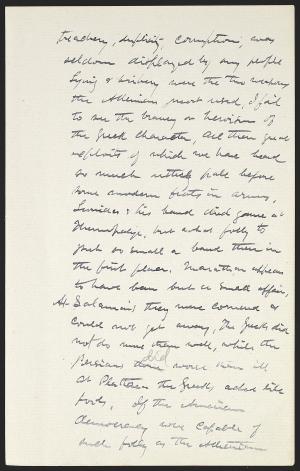 treachery, duplicity, corruption, was
seldom displayed by any people
Lying & bribery were the two weapons
the Athenian most used, I fail
to see the bravery or heroism of
the Greek character, All their great
exploits of which we have heard
so muchattack pale before
some modern feats in arms,
Leonidas & his band died game at
Thermopylae, but it was folly to
put so small a band there in
the first place. Marathon appears
to have been but a small affair,
At Salamis they were cornered &
could not get away, The Greeks did
not do more than well, while the
Persians did worse than ill
At Plataea the Greeks acted like
fools, If the American
democracy were capable of
such folly as the Athenian